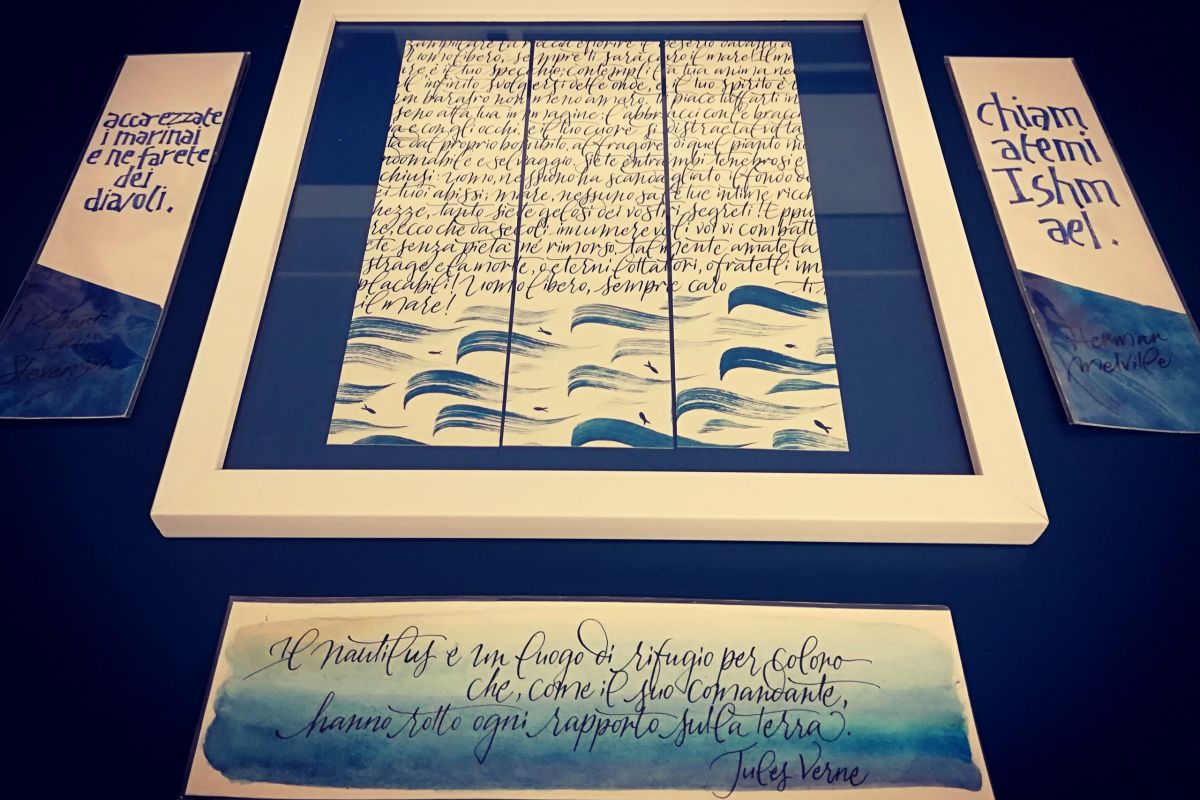 accarezzate
i marinai
e ne farete
dei
diavoli.
Robert
Louis
Stevenson
zampillare la roccia e fiorire il deserto davanti a
Uomo libero, sempre ti sarà caro il mare! Il ma
re è il tuo specchio; contempli la tua anima ne
ll'infinito svolgersi dell'onde, e il tuo spirito è
un baratro non meno amaro. Ti piace tuffarti in
seno alla tua immagine: l'abbracci con le bracc
ia e con gli occhi, e il tuo cuore si distrae talvolta
dal proprio battito, al fragore di quel pianto in
domabile e selvaggio. Siete entrambi tenebrosi e
chiusi: Uomo, nessuno ha scandagliato il fondo de
i tuoi abissi; mare, nessuno sa le tue intime ricc
hezze, tanto siete gelosi dei vostri segreti! Eppu
re, ecco che da secoli innumerevoli voi vi combatt
ete senza pietà né rimorso, talmente amate la
strage e la morte, o eterni lottatori, o fratelli im
placabili! Uomo libero, sempre caro ti s
il mare!
chiam
atemi
Ishm
ael.
Herman
Melville
Il nautilus è un luogo di rifugio per coloro
che, come il suo comandante,
hanno rotto ogni rapporto sulla terra.
Jules Verne